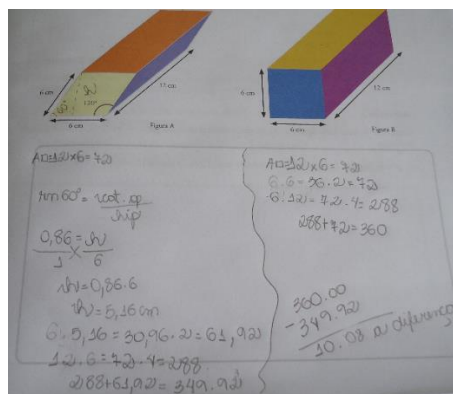 6 cm
h
60°
120°
6 cm
12 cm
Figura A
6 cm
6 cm
12 cm
Figura B
A=12x6=72
sen 60° = cat. op
hip
0,86 = h
1 6
h=0,86.6
h=5,16cm
6.5,16=30,96.2=61,92
12.6=72.4=288
288+61,92=349.92
A=12x6=72
6.6=36.2=72
6.12=72.4=288
288+72=360
360.00
-349.92
10.08 a diferença